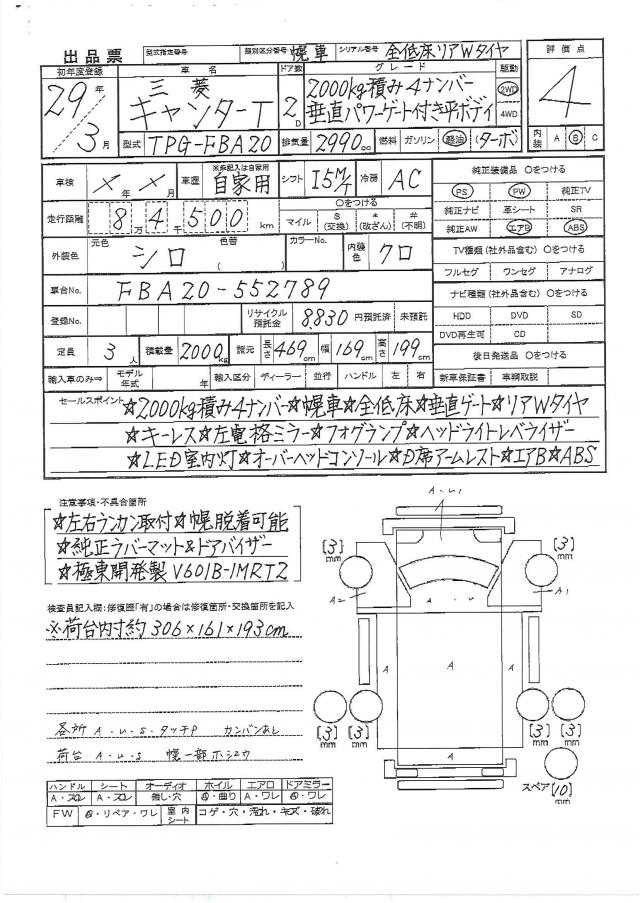 出品票 型式指定番号 類別区分番号 幌車 シリアル番号 全低床リアWタイヤ 評価点
初年度登録 車名 ドア数 グレード 駆動
29年3月 三菱 キャンターT 2D 2000kg積み4ナンバー 2WD 4
垂直パワーゲート付き平ボディ 4WD
型式 TPG-FBA20 排気量 2990cc 燃料 ガソリン 軽油 ターボ 内装 A B C
車検 ×年×月 車歴 ※未記入は自家用 自家用 シフト 15M/T 冷房 AC 純正装備品 ○をつける
PS PW 純正TV
走行距離 8万4千500km ○をつける マイル $(交換) *(改ざん) #(不明) 純正ナビ 革シート SR
純正AW エアB ABS
外装色 元色 シロ 色替 ( ) カラーNo. 内装色 クロ TV種類(社外品含む) ○をつける
フルセグ ワンセグ アナログ
車台No. FBA20-552789 ナビ種類(社外品含む) ○をつける
登録No. リサイクル預託金 8,830円預託済 未預託 HDD DVD SD
DVD再生可 CD
定員 3人 積載量 2000kg 諸元 長さ469cm 幅169cm 高さ199cm 後日発送品 ○をつける
輸入車のみ⇒ モデル年式 年 輸入区分 ディーラー 並行 ハンドル 左 右 新車保証書 車輌取説
セールスポイント ☆2000kg積み4ナンバー☆幌車☆全低床☆垂直ゲート☆リアWタイヤ
☆キーレス☆左電格ミラー☆フォグランプ☆ヘッドライトレベライザー
☆LED室内灯☆オーバーヘッドコンソール☆D席アームレスト☆エアB☆ABS
注意事項・不具合箇所
☆左右ランカン取付☆幌脱着可能
☆純正ラバーマット&ドアバイザー
☆極東開発製 V601B-1MRT2
検査員記入欄:修復歴「有」の場合は修復箇所・交換箇所を記入
※荷台内寸約306×161×193cm
各所 A・U・S・タッチP カンバンあし
荷台 A・U・S 幌一部ホシュウ
A・U・1
[3]mm [3]mm
A2 A1
A・U
A A A
[3]mm [3]mm [3]mm [3]mm
A
スペア [10]mm
ハンドル シート オーディオ ホイル エアロ ドアミラー
A・スレ A・スレ 無し・穴 A・曲り A・ワレ A・ワレ
FW A・リペア・ワレ 室内シート コゲ・穴・汚れ・キズ・破れ